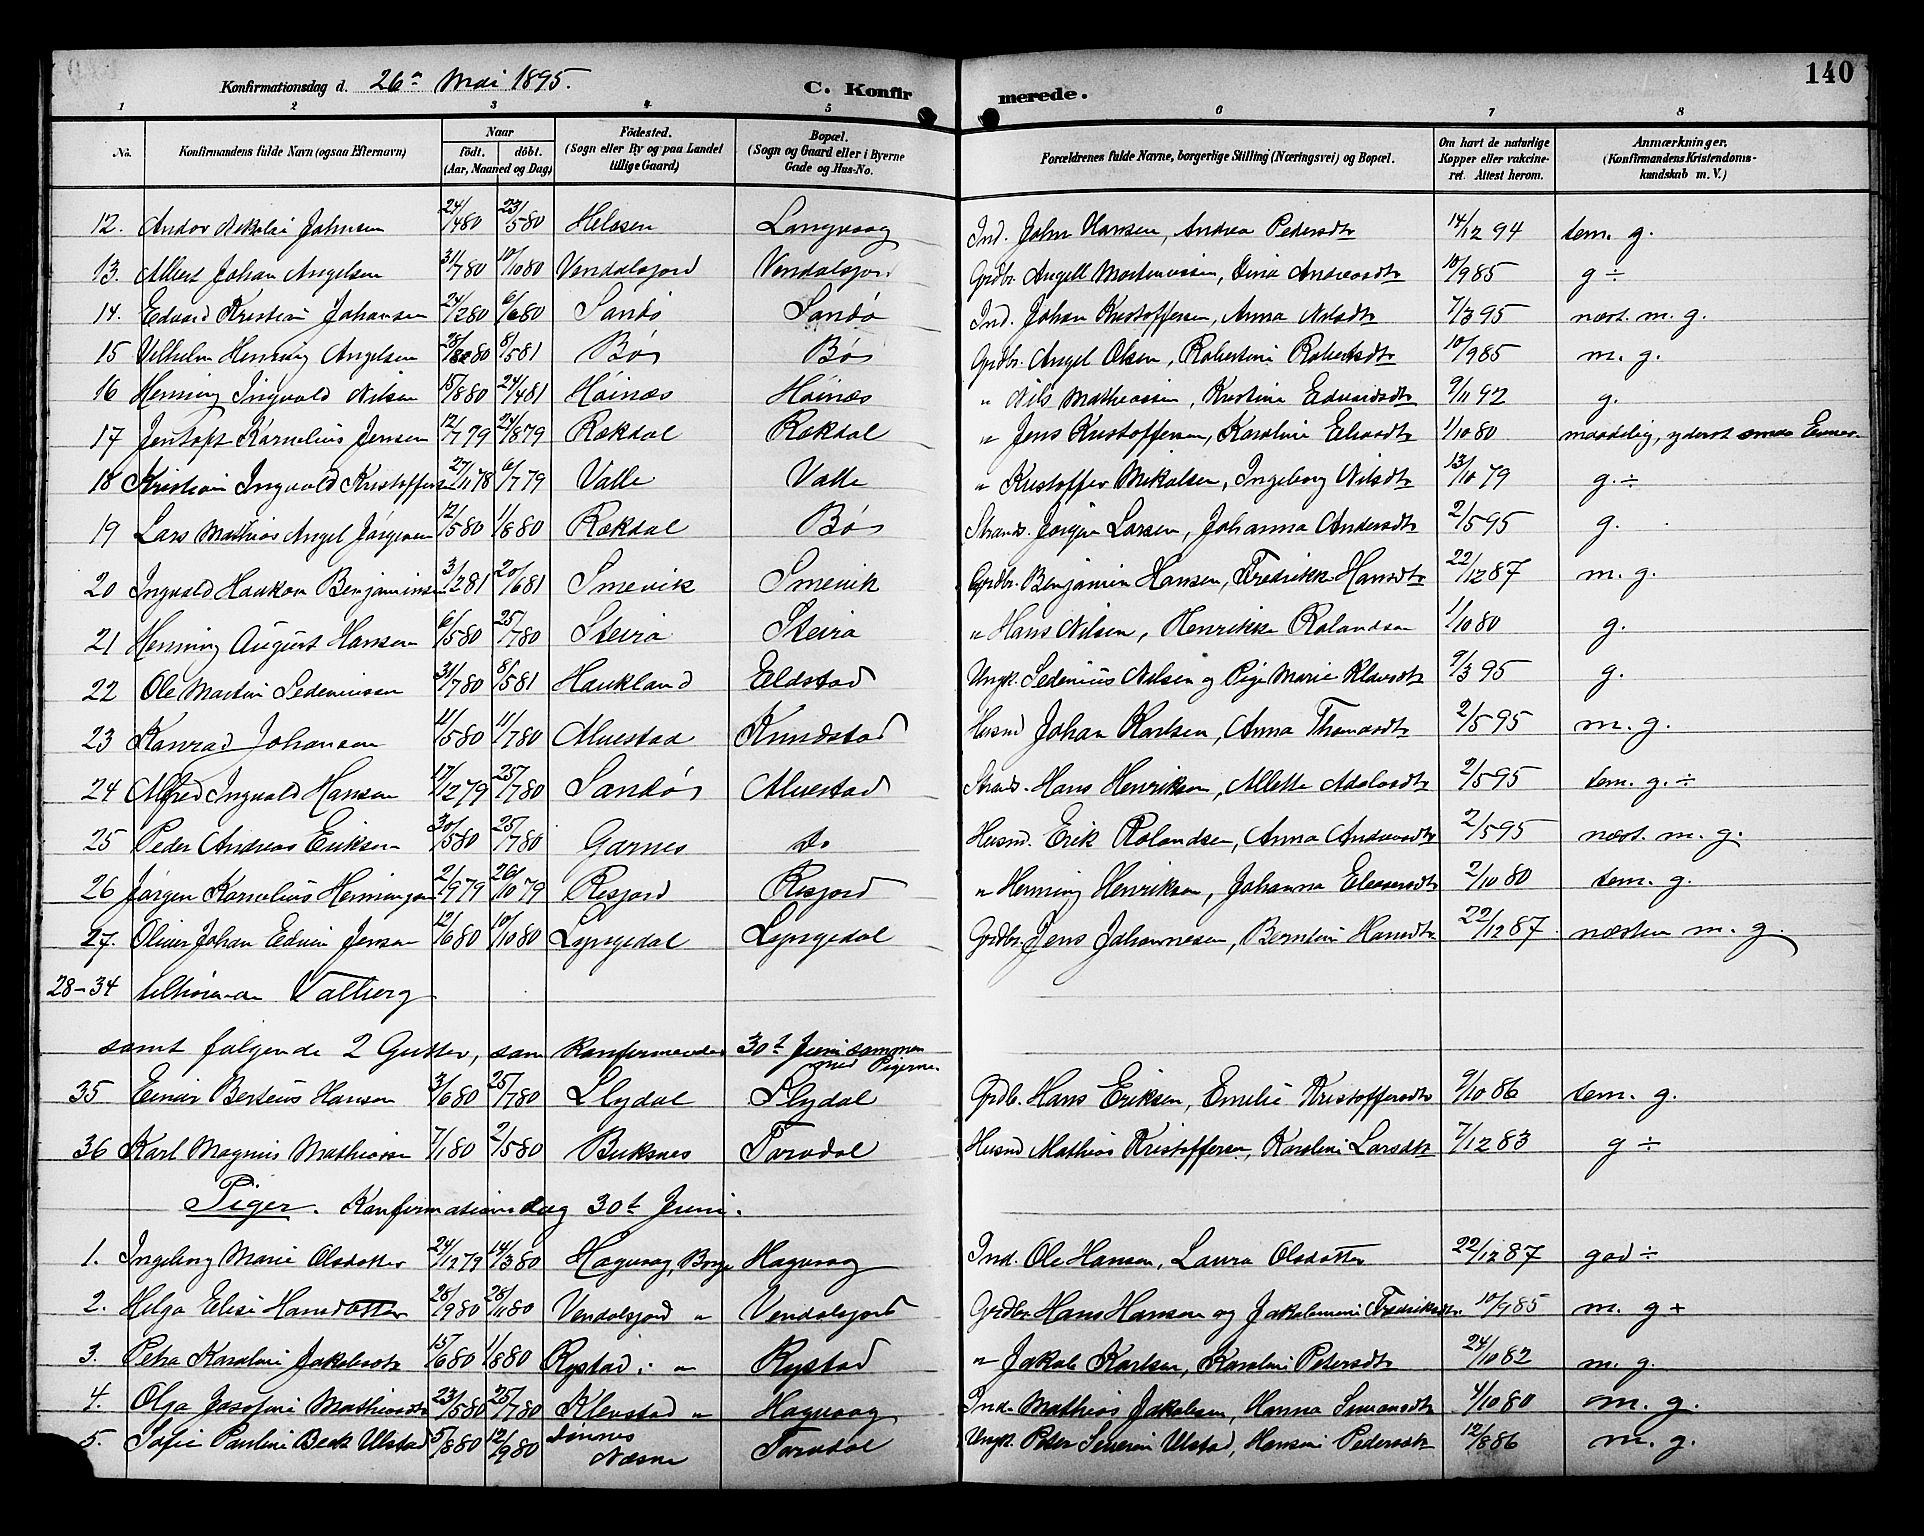 140
Konfirmationsdag d. 26de Mai 1895. C. Konfirmerede.
1 2 3 4 5 6 7 8
No. Konfirmandens fulde Navn (ogsaa Efternavn) Naar födt. döbt. (Aar, Maaned og Dag) Födested. (Sogn eller By og paa Landet tillige Gaard) Bopæl. (Sogn og Gaard eller i Byerne Gade og Hus-No. Forældrenes fulde Navne, borgerlige Stilling (Næringsvei) og Bopæl. Om havt de naturlige Kopper eller vakcineret. Attest herom. Anmærkninger. (Konfirmandens Kristendomskundskab m. V.)
12. Andor Nikolai Johnsen 24/4 80 23/5 80 Helosen Langvaag Ind. John Hansen, Andrea Pedersdtr 14/12 94 tem. g.
13. Albert Johan Angelsen 31/7 80 10/10 80 Vendalsjord Vendalsjord Grdbr. Angell Mortenssen, Dina Andreasdtr 10/9 85 g ÷
14. Edvard Kristian Johansen 24/2 80 6/6 80 Sandø Sandø Ind. Johan Kristoffersen, Anna Nilsdtr 7/3 95 næst. m. g.
15 Vilhelm Henning Angelsen 28/12 80 8/5 81 Bø Bø Grdbr. Angel Olsen, Robertine Robertsdtr 10/9 85 m. g.
16 Henning Ingvald Nilsen 15/8 80 24/4 81 Høinæs Høinæs " Nils Mathiassen, Kristine Edvardsdtr 9/11 92 g.
17 Jentoft Kornelius Jensen 12/7 79 24/8 79 Rækdal Rækdal " Jens Kristoffersen, Karoline Eliasdtr 1/10 80 maadelig, yderst smaa Evner.
18 Kristian Ingvald Kristoffersen 27/11 78 6/7 79 Valle Valle " Kristoffer Mikalsen, Ingeborg Nilsdtr 13/10 79 g. ÷
19 Lars Mathias Angel Jørgensen 12/5 80 1/8 80 Rækdal Bø Strands. Jørgen Larsen, Johanna Andersdtr 2/5 95 g.
20 Ingvald Haakon Benjaminsen 3/2 81 20/6 81 Smevik Smevik Grdbr. Benjamin Hansen, Fredrikke Hansdtr 22/12 87 m. g.
21 Henning August Hansen 6/5 80 25/7 80 Steira Steira " Hans Nilsen, Henrikke Rolandsen 1/10 80 g.
22 Ole Martin Sedeniusen 31/7 80 8/5 81 Haukland Eldstad Ungk. Sedenius Nilsen og Pige Marie Klausdtr 9/3 95 g.
23 Konrad Johansen 11/5 80 11/7 80 Alvestad Knudstad Husmd Johan Karlsen, Anna Thomasdtr 2/5 95 m. g.
24 Alfred Ingvald Hansen 17/12 79 25/7 80 Sandø Alvestad Strands. Hans Henriksen, Allette Adolosdtr 2/5 95 tem. g. ÷
25 Peder Andreas Eriksen 30/5 80 25/7 80 Garnes do Husmd. Erik Rolandsen, Anna Andreasdtr 2/5 95 næst. m. g.
26 Jørgen Kornelius Henningsen 2/9 79 26/10 79 Resjord Resjord " Henning Henriksen, Johanna Eleasersdtr 2/10 80 tem. g.
27. Oliver Johan Edvin Jensen 12/6 80 10/10 80 Lyngedal Lyngedal Grdbr. Jens Johannesen, Berntine Hansdtr 22/12 87. næsten m. g.
28–34 tilhørende Valberg
samt følgende 2 Gutter, som konfirmeredes 30te Juni sammen med Pigerne.
35 Einar Berteus Hansen 3/6 80 25/7 80 Slydal Slydal Grdb. Hans Eriksen, Emilie Kristoffersdtr 9/10 86 tem. g.
36 Karl Magnus Mathiassen 7/1 80 2/5 80 Buksnes Torvdal Husmd Mathias Kristoffersen, Karoline Larsdtr 7/12 83 g ÷
Piger. Konfirmationsdag 30te Juni.
1. Ingeborg Marie Olsdatter 24/12 79 14/3 80 Hagvaag, Borge Hagvaag Ind. Ole Hansen, Laura Olsdatter 22/12 87 god ÷
2. Helga Elise Hansdatter 28/9 80 28/11 80 Vendalsjord " Vendalsjord Grdbr Hans Hansen og Jakobmine Fredriksdtr. 10/9 85 m. g +
3. Petra Karoline Jakobsdtr 15/6 80 1/8 80 Rystad " Rystad " Jakob Karlsen, Karoline Petersdtr 24/10 82 m. g.
4. Olga Josofine Mathiasdtr 23/5 80 25/7 80 Klevstad " Hagvaag Ind. Mathias Jakobsen, Hanna Simonsdtr 4/10 80 m. g.
5. Sofie Pauline Beck Ulstad 5/8 80 12/9 80 Dønnes Næsne Torvdal Ungk. Peter Severin Ulstad, Hansine Pedersdtr 12/8 86 m. g.